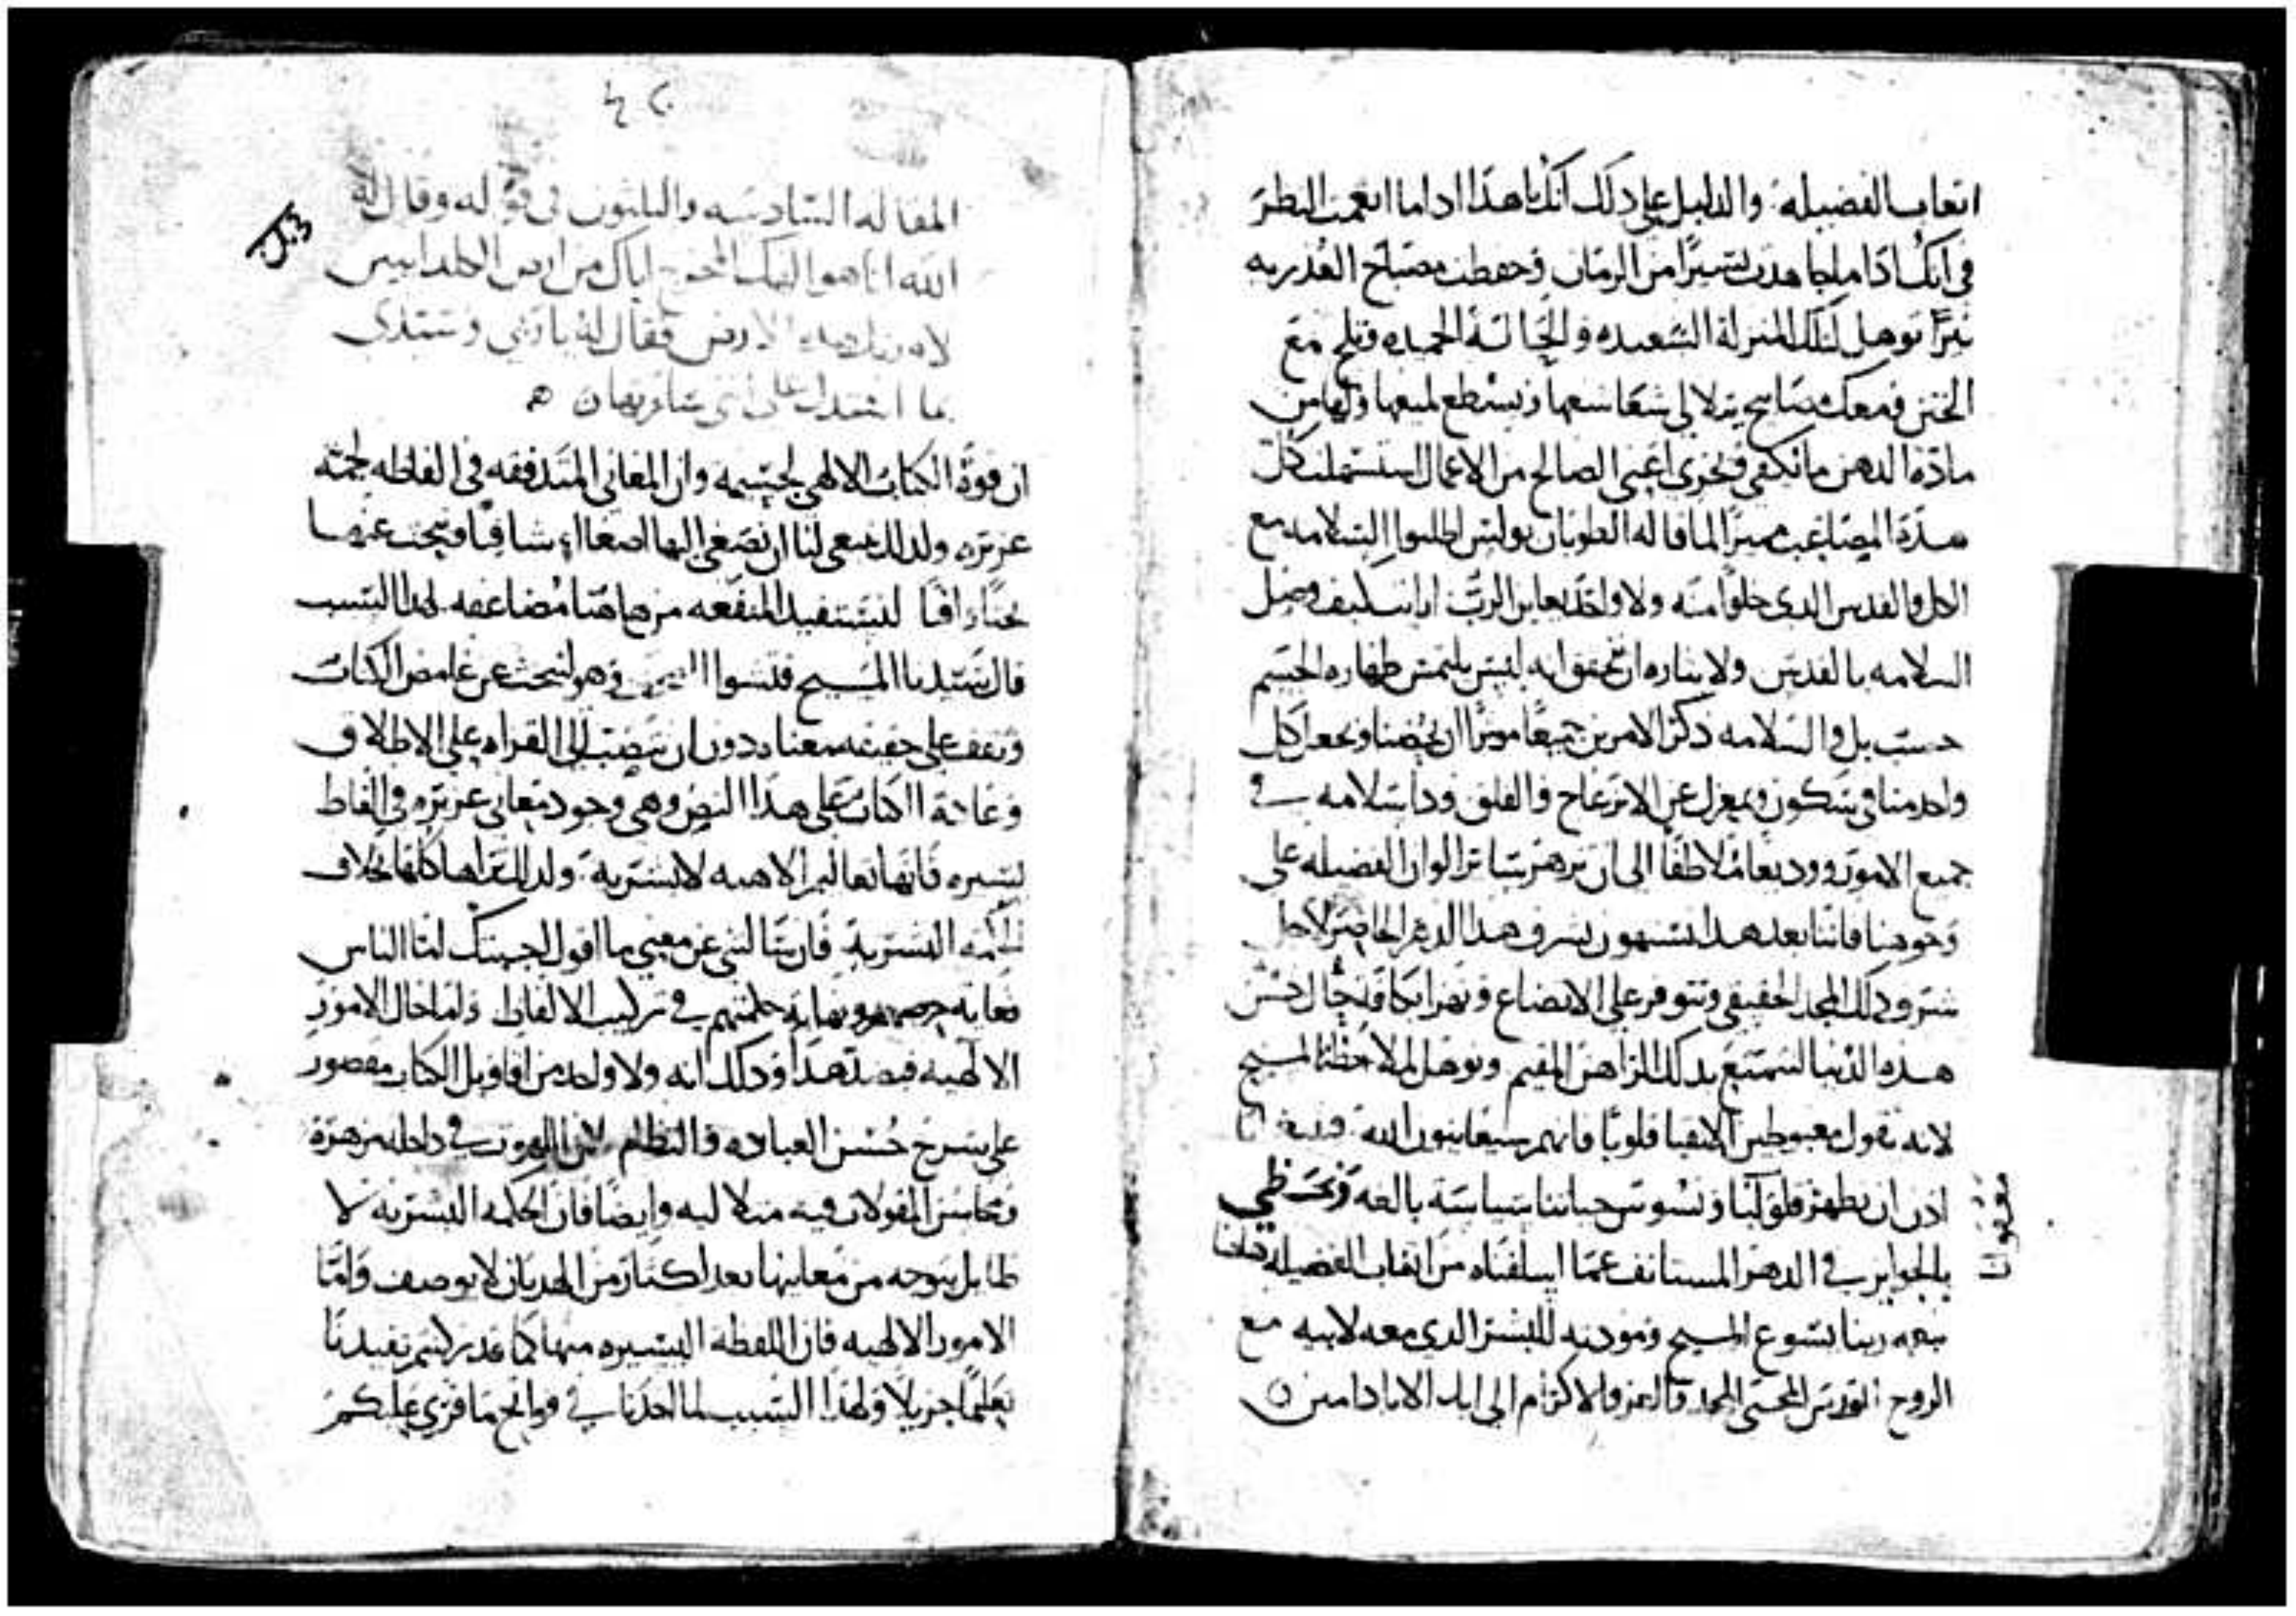 اتعاب الفضيله والدليل علي ذلك انك ياهذا اذا ما انعمت النظر
في انك اذا ما جاهدت يسيرًا من الزمان وحفظت مصباح القدريه
نيرًا توهل لتلك المنزله السعيده والحاله الحميده وتلج مع
الختن ومعك مصابيح يتلالى شعاعها ويسطع لميعها ولها من
مادة الدهن ما تكفي وتجزي اعني الصالح من الاعمال استتملت كل
هذه المصاعب مميزًا لما قاله الطوبان بولس اطلبوا السلامه مع
الكل والقدس الذي خلوا منه ولا واحد يعاين الرب ارايت كيف وصل
السلامه بالقدس ولا يتاره ان تحقق انه ليس يلتمس طهاره الجسم
حسب بل والسلامه ذكر الامرين جميعًا موثرًا ان يحضنا ويجعل كل
واحد منا في سكون وبمعزل عن الانزعاج والقلق وذا سلامه في
جميع الامور ووديعًا ملاطفًا الى ان تزهر ساير الوان الفضيله على
وجوهنا فاننا بعد هذا نستهون بشرف هذا الدهر الحاضر لاجل
شرف ذلك المجد الحقيقي ونتوفر على الاتضاع ونهزا بكافة جمال حسن
هذه الدنيا لنتمتع بذلك الزاهر المقيم ونوهل لملاحظة المسيح
لانه يقول مغبوطين الانقيا قلوبًا فانهم سيعاينون الله فينبغي لنا
اذن ان نطهر قلوبنا ونسوس حياتنا سياسة بالغه ونحظي
بالجوايز في الدهر المستانف عما اسلفناه من اتعاب الفضيله قبلنا
بنعمه ربنا يسوع المسيح ومودته للبشر الذي معه لابيه مع
الروح القدس المحيي المجد والعز والاكرام الى ابد الاباد امين
المقاله السادسه والثلثون في قوله وقال له
الله انا هو الهك المخرج اياك من ارض الكلدانيين
لاورثك هذه الارض فقال له يا ربي وسيدي
بما استدل على اني ساورثها
ان قوة الكتاب الالهي لجسيمه وان المعاني المتدفقه في الفاظه لجمه
عزيزه ولذلك ينبغي لنا ان نصغي اليها اصغاءً شافيًا ونبحث عنها
بحثًا وافيًا لنستفيد المنفعه من هاهنا مضاعفه لهذا السبب
قال سيدنا المسيح فتشوا الكتب وهو لنبحث عن غامض الكتاب
ونقف على حقيقه معناه دون ان ننصب الى القراه على الاطلاق
وعادة الكتاب على هذا النص وهي وجود معاني عزيزه في الفاظ
يسيره فانها تعاليم الاهيه لا بشرية ولذلك تراها كلها بخلاف
الحكمه البشرية فان سالتني عن معنى ما اقول اجبتك اما الناس
فغايه حرصهم ونهاية حكمتهم في تركيب الالفاظ واما حال الامور
الالهيه فبضد هذا وذلك انه ولا واحد من اقاويل الكتاب مقصور
على شرح حسن العباده والنظام لان اللاهوت في داخله مزهرة
ومحاسن المقولات فيه متلاليه وايضًا فان الحكمه البشريه لا
طايل يتوجه من معانيها بعد اكثار من الهذيان لا يوصف واما
الامور الالهيه فان اللفظه اليسيره منها كما قد رايتم تفيدنا
تعلمًا جزيلًا ولهذا السبب لما اخذنا في فواتح ما قري عليكم